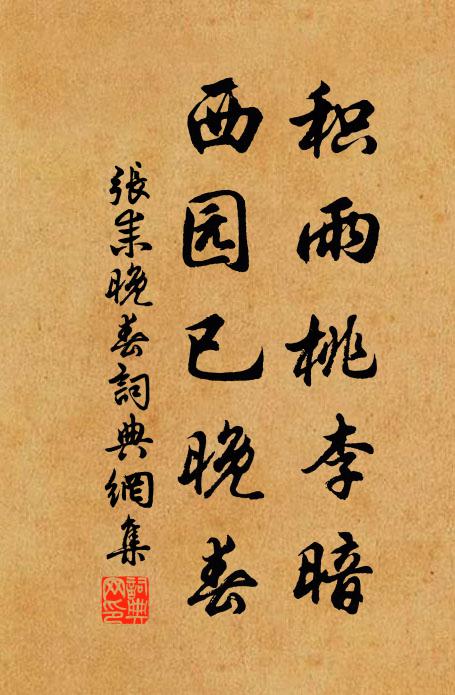 积雨桃李暗
西园已晚春
張耒晚春詞典網集
詞典网印